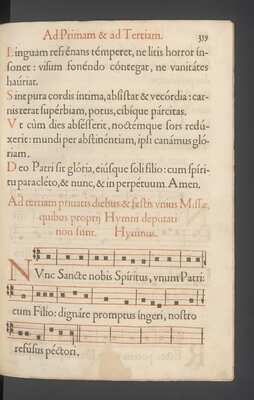 Ad Primam & ad Tertiam. 359
Linguam refrénans témperet, ne litis horror in-
sonet: visum fonéndo cóntegat, ne vanitátes
háuriat.
Sint pura cordis íntima, absístat & vecórdia: car-
nis terat supérbiam, potus, cibíque párcitas.
Vt cùm dies abscésserit, noctémque sors redú-
xerit: mundi per abstinéntiam, ipsi canámus gló-
riam.
Deo Patri sit glória, eiúsque soli filio: cum spíri-
tu parácleto, & nunc, & in perpétuum. Amen.
Ad tertiam priuatis diebus & festis vnius Missæ,
quibus proprij Hymni deputati
non sunt. Hymnus.
NVnc Sancte nobis Spíritus, vnum Patri
cum Filio: dignáre promptus íngeri, nostro
refúsus péctori.